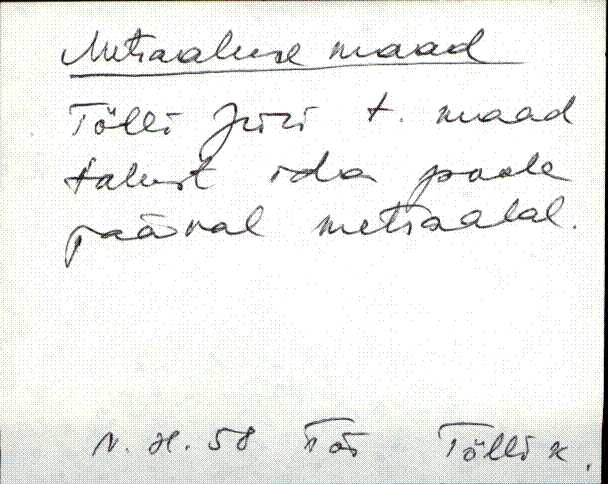 Metsaaluse maad
Tõlli Jüri t. maad
talust ida poole
jääval metsaalal.
N. H. 58 Põi Tõlli k.